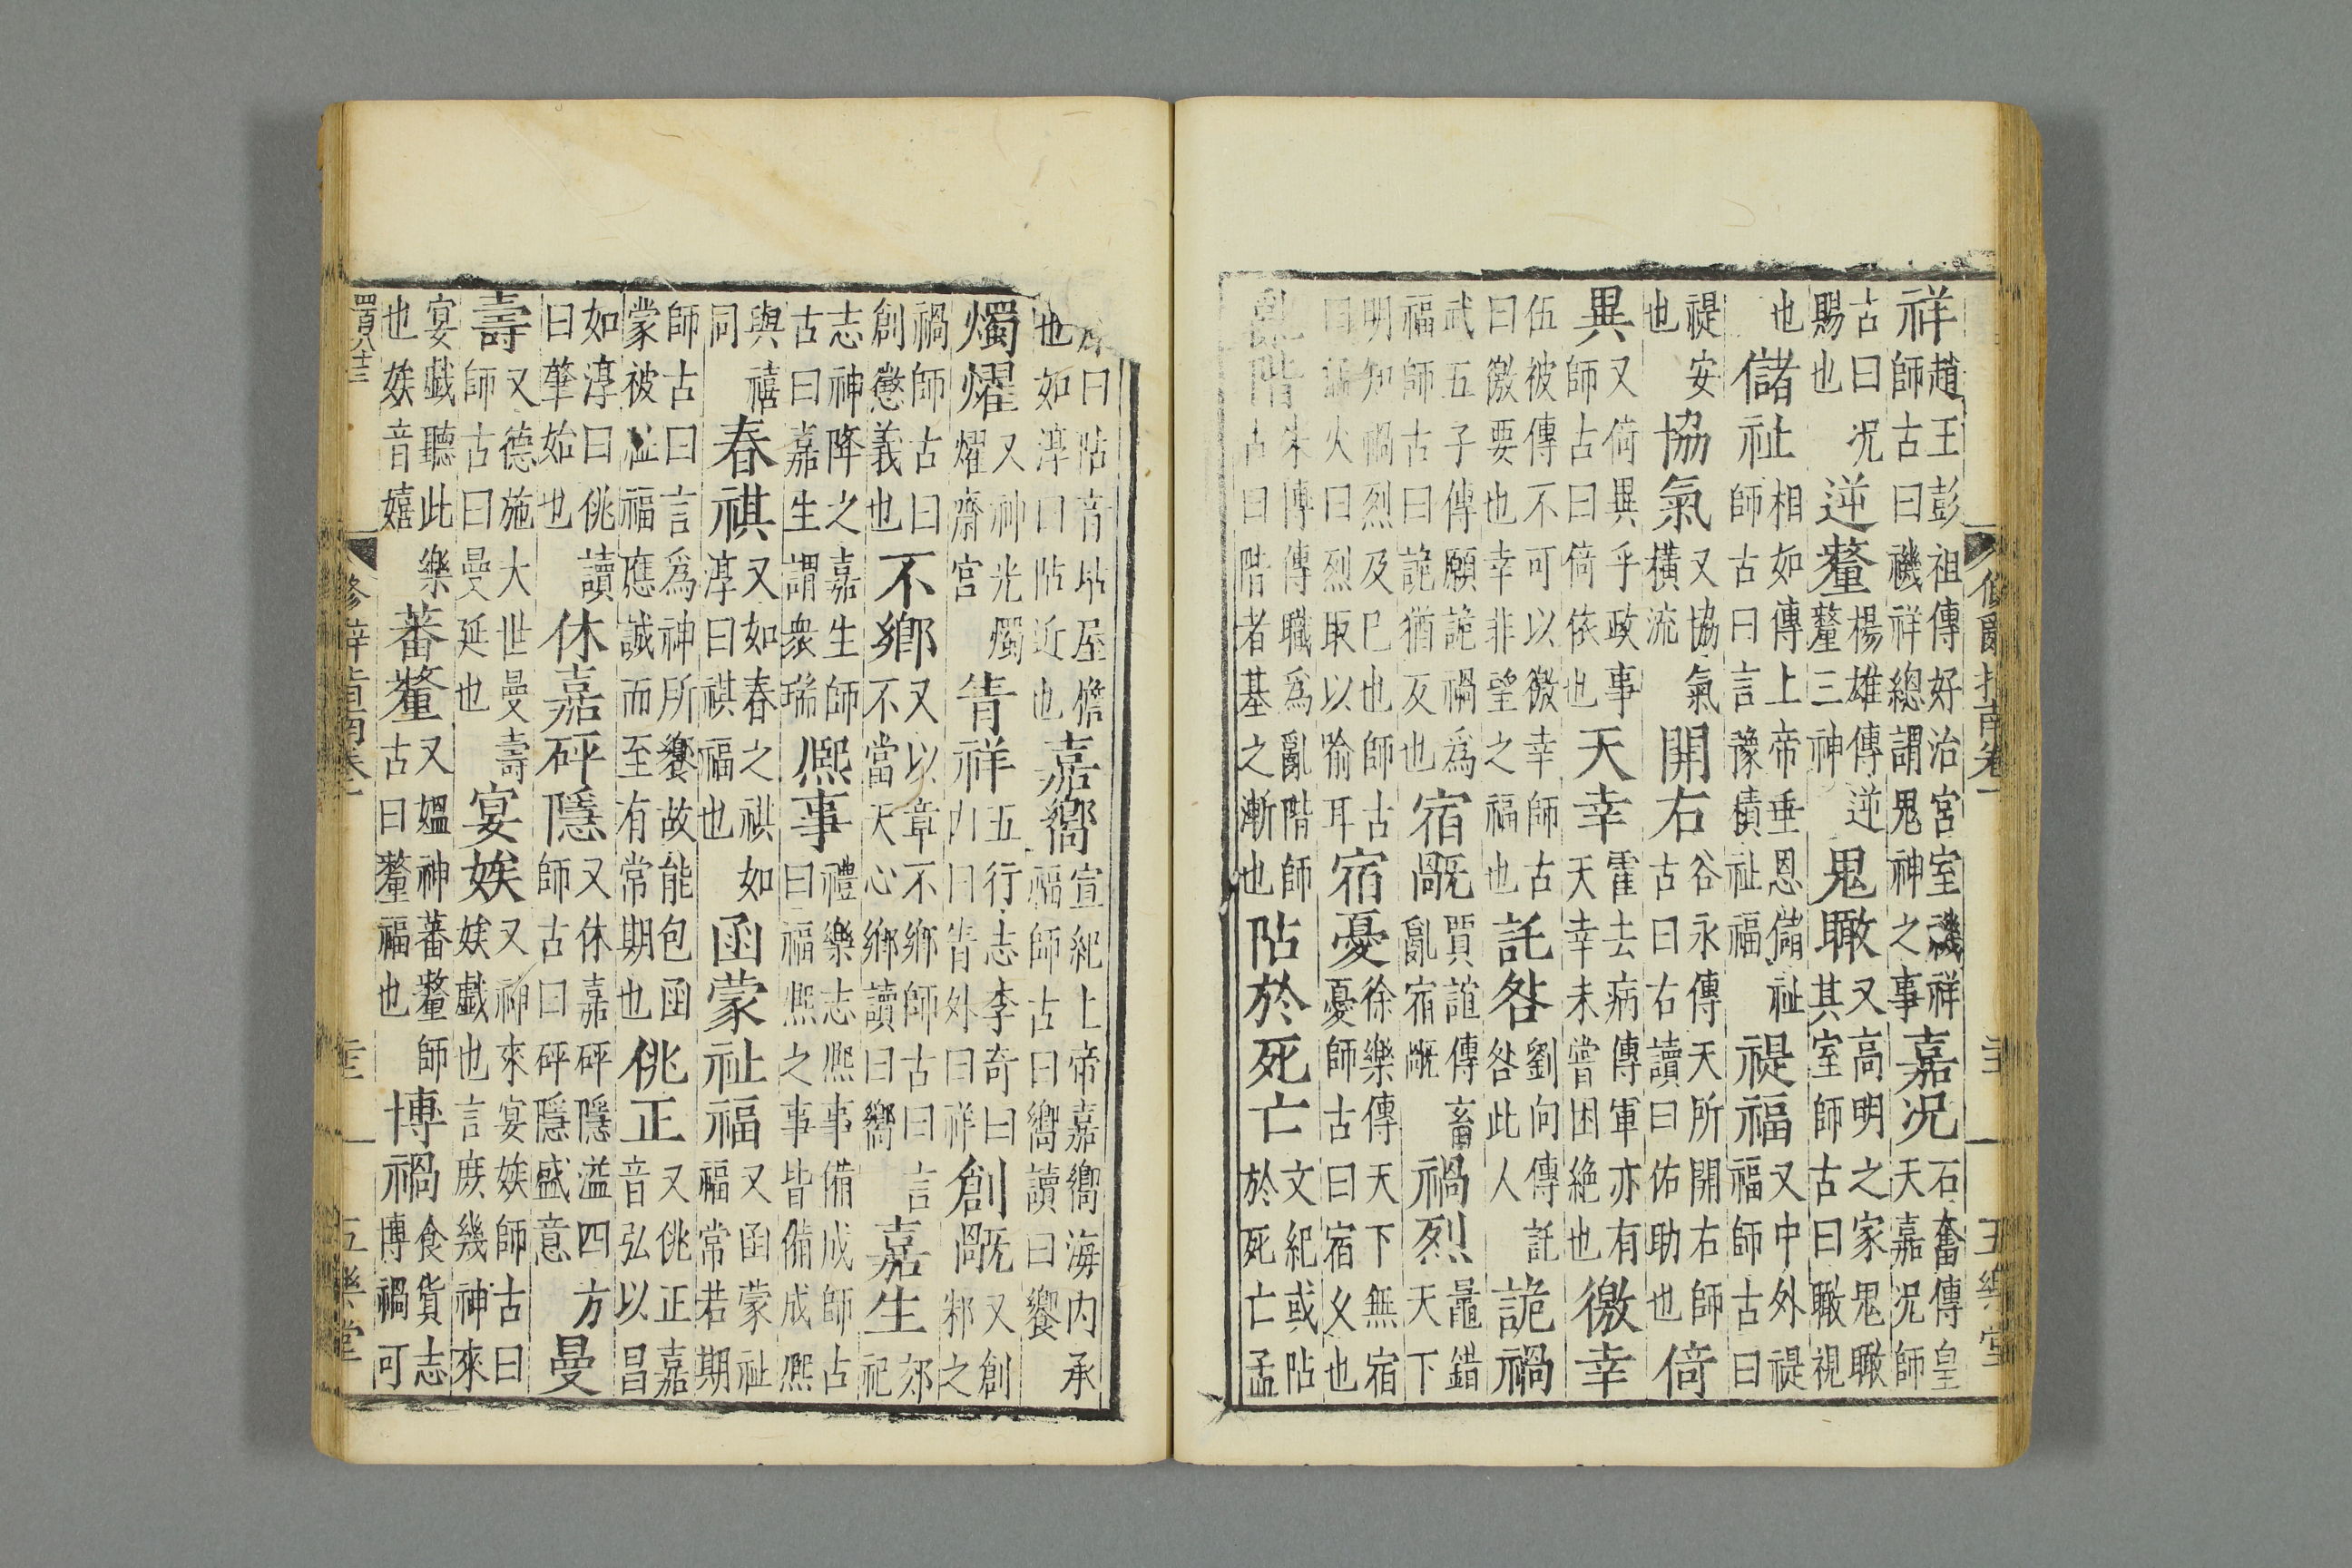 修辭指南卷一 二十 五樂堂
祥趙王彭祖傳好治宮室禨祥師古曰禨祥總謂鬼神之事嘉况石奮傳皇天嘉况師
古曰况賜也逆釐楊雄傳逆釐三神鬼瞰又高明之家鬼瞰其室師古曰瞰視
也儲祉相如傳上帝垂恩儲祉師古曰言豫積祉福禔福又中外禔福師古曰
禔安也協氣又協氣橫流開右谷永傳天所開右師古曰右讀曰佑助也倚
異又倚異乎政事師古曰倚依也天幸霍去病傳軍亦有天幸未嘗困絶也徼幸
伍被傳不可以徼幸師古曰徼要也幸非望之福也託咎劉向傳託咎此人詭禍
武五子傳願詭禍爲福師古曰詭猶反也宿嘅賈誼傳畜亂宿嘅禍烈鼂錯天下
明知禍烈及已也師古曰火曰烈取以喻耳宿憂徐樂傳天下無宿憂師古曰宿久也
亂階朱博傳傳職爲亂階師古曰階者基之漸也阽於死亡文紀或阽於死亡孟
康曰阽音坫屋檐也如淳曰阽近也嘉嚮宣紀上帝嘉嚮海内承福師古曰嚮讀曰饗
燭燿又神光燭燿齋宮眚祥五行志李奇曰内曰眚外曰祥創嘅又創邾之
禍師古曰創懲義也不鄉又以章不鄉師古曰言不當天心鄉讀曰嚮嘉生郊祀
志神降之嘉生師古曰嘉生謂衆瑞熈事禮樂志熈事備成師古曰福熈之事皆備成熈
與禧同春祺又如春之祺如淳曰祺福也函蒙祉福又函蒙祉福常若期
師古曰言爲神所饗故能包函蒙被祉福應誠而至有常期也佻正又佻正嘉音弘以昌
如淳曰佻讀曰肇始也休嘉砰隱又休嘉砰隱溢四方師古曰砰隱盛意曼
壽又德施大世曼壽師古曰曼延也宴娭又神來宴娭師古曰娭戲也言庶幾神來
宴戲聽此樂也娭音嬉蕃釐又媼神蕃釐師古曰釐福也博禍食貨志博禍可
四百八十三 修辭指南卷一 五樂堂